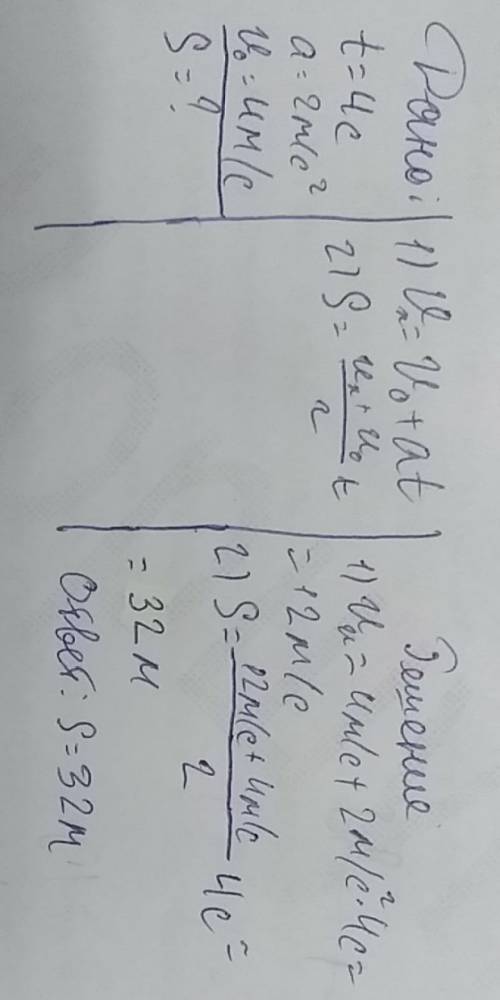 Дано:
t = 4с
a = 2м/с²
v₀ = 4м/с
S = ?
1) vₓ = v₀ + at
2) S = (vₓ + v₀)/2 t
Решение
1) vₓ = 4м/с + 2м/с² · 4с =
= 12м/с
2) S = (12м/с + 4м/с)/2 4с =
= 32м
Ответ: S = 32м